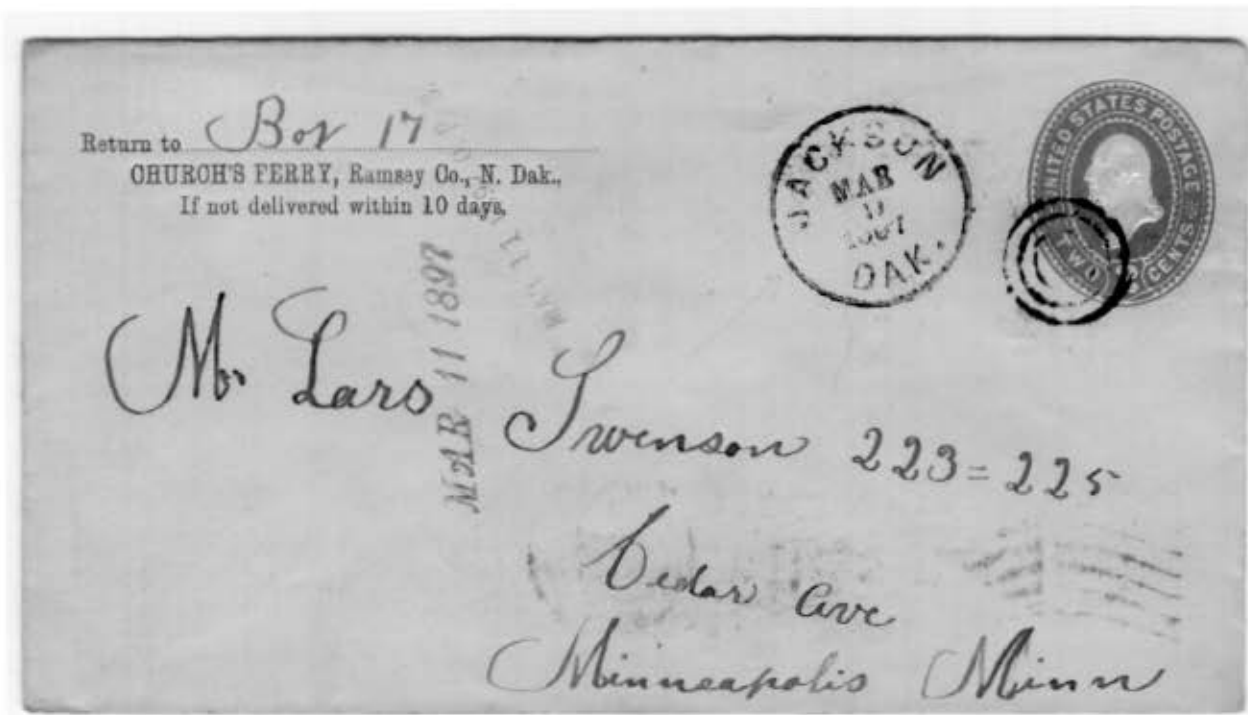 Return to Box 17
CHURCH'S FERRY, Ramsey Co., N. Dak.,
If not delivered within 10 days.
JACKSON
MAR
1897
DAK.
UNITED STATES POSTAGE
TWO 2 CENTS
MAR 11 1897
Mr Lars Swenson 223=225
Cedar Ave
Minneapolis Minn